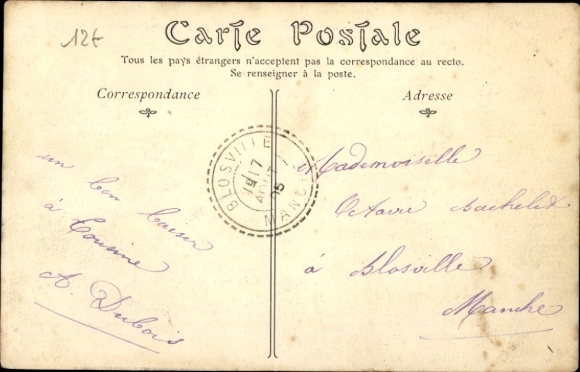 12€
Carte Postale
Tous les pays étrangers n'acceptent pas la correspondance au recto.
Se renseigner à la poste.
Correspondance
Adresse
BLOSVILLE
17
AOUT
05
MANCHE
un bon baiser
à Cousine
A. Dubois
Mademoiselle
Octavie Bachelet
à Blosville
Manche